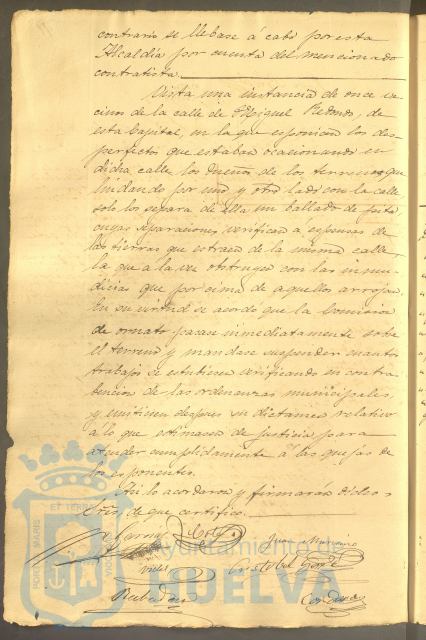 contrario se llebase á cabo por esta
Alcaldía por cuenta del mencionado
contratista
Vista una instancia de once ve-
cinos de la calle de Miguel Redondo, de
esta Capital, en la que esponian los des-
perfectos que estaban ocasionando en
dicha calle los dueños de los terrenos que
lindando por uno y otro lado con la calle
solo los separa de ella un ballado de pita
cuyas separaciones verifican a espensas de
las tierras que estraen de la misma calle,
la que á la vez obstruyen con las inmun-
dicias que por cima de aquellos arrojan.
En su virtud se acordó que la Comision
de ornato pasase inmediatamente sobre
el terreno y mandase suspender cuantos
trabajos se estubiesen verificando en contra-
bencion de las ordenanzas municipales
y emitiesen despues un dictámen relativo
á lo que estimasen de justicia para
atender cumplidamente á las quejas de
los esponentes.
Asi lo acordaron y firmarán dichos
Sres, de que certifico.
Garcia
Juan Mariano
Cristobal Garcia
Cordova
PORTUS MARIS ET TERRAE
Ayuntamiento de
HUELVA